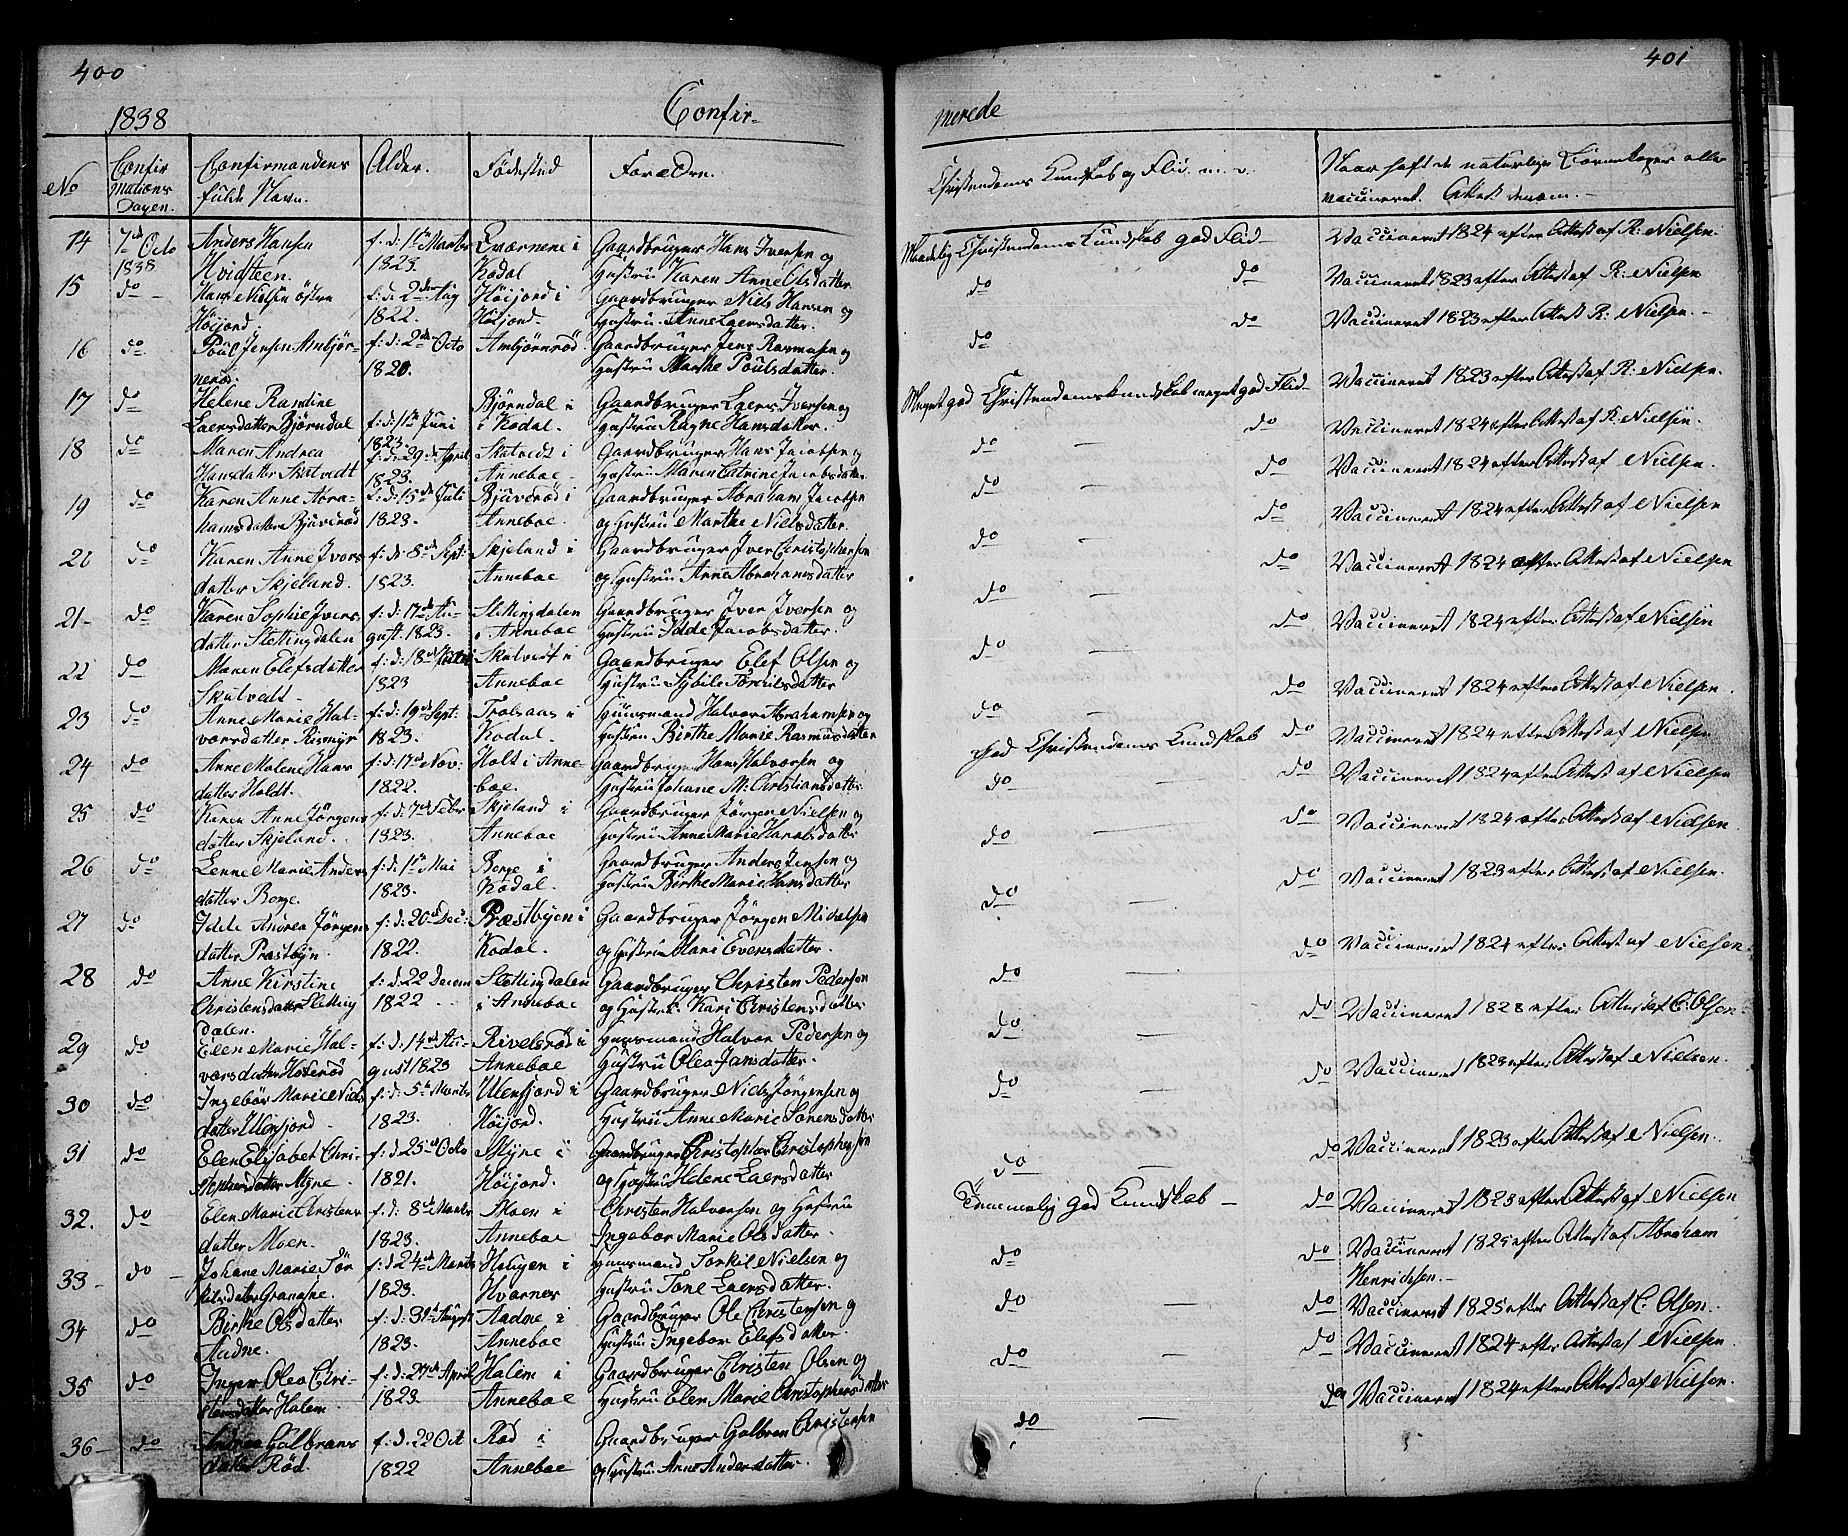 400
1838
Confir-
No
Confir
mations
Dagen.
Confirmandens
fulde Navn.
Alder.
Fødested
Forældre.
14
7de Octo
1838
Anders Hansen
Hvidsteen.
f: d: 1ste Martz
1823.
i
Kodal
Gaardbruger Hans Iversen og
Hustru Karen Anne Olsdatter
15
do
Hans Nielsen östre
Höijord.
f: d: 2den Aug
1822.
Höijord i
Höijord.
Gaardbruger Niels Hansen og
Hustru Anne Laersdatter.
16
do
Poul Jensen Anbjör-
neröd.
f: d: 2den Octo
1820.
Ambjörnröd
Gaardbruger Jens Rasmusen og
Hustru Marthe Poulsdatter.
17
do
Helene
Laersdatter Bjørndal
f: d: 1ste Juni
1823.
Bjørndal i
i Kodal.
Gaardbruger Laers Iversen og
Hustru Ragne Hansdatter.
18
do
Maren Andrea
Hansdatter Skatvedt
f: d: 29de April
1823.
Skatvedt i
Anneboe
Gaardbruger Hans Jacobsen og
Hustru Maren Catrine Jacobsdatter
19
do
Karen Anne Abra-
hamsdatter Bjuveröd
f: d: 15de Juli
1823.
Bjuveröd i
Anneboe.
Gaardbruger Abraham Jacobsen
og Hustru Marthe Nielsdatter.
20
do
Karen Anne Ivers
datter Skjeland.
f: d: 8de Sept:
1823.
Skjeland i
Anneboe
Gaardbruger Iver Christophersen
og Hustru Anne Abrahamsdatter
21-
do
Karen Sophie Ivers
datter Slettingdalen
f: d: 17de Au-
gust. 1823.
Slettingdalen
i Anneboe
Gaardbruger Iver Iversen og
Hustru Idde Jacobsdatter.
22
do
Maren Elefsdatter
Skatvedt-
f: d: 18de
1823
Skatvedt i
Anneboe
Gaardbruger Elef Olsen og
Hustru
23
do
Anne Marie Hal-
vorsdatter
f: d: 19de Sept:
1823.
i
Kodal.
Huusmand Halvor Abrahamsen og
Hustru Birthe Marie Rasmusdatter
24
do
Anne Malene Hans
datter Holdt.
f: d: 17de Nov:
1822.
Holt i Anne
boe.
Gaardbruger Hans Halvorsen og
Hustru Johane M: Christiansdatter
25
do
Karen Anne Jörgens
datter Skjeland.
f: d: 7de Febr
1823.
Skjeland i
Anneboe
Gaardbruger Jörgen Nielsen og
Hustru Anne Marie
26
do
Lenne Marie Anders
datter Berge
f: d: 1ste Mai
1823.
Berge i
Kodal.
Gaardbruger Anders Jensen og
Hustru Birthe Marie Hansdatter
27
do
Idde Andrea Jörgens
datter Præstbyn
f: d: 20de Dec:
1822.
Præstbyen i
Kodal.
Gaardbruger Jörgen Michelsen
og Hustru Mari Eversdatter.
28
do
Anne Kirstine
Christensdatter Sletting
dalen.
f: d. 22 Decem
1822
Slettingdalen
i Anneboe
Gaardbruger Christen Pedersen
og Hustru Kari Christensdatter
29
do
Elen Marie Hal-
vorsdatter
f: d: 14de Au-
gust 1823
i
Anneboe
Huusmand Halvor Pedersen og
Hustru Olea Jansdatter.
30
do
Ingebör Marie Niels
datter
f: d: 5te Martz
1823.
i
Höijord.
Gaardbruger Niels Jörgensen og
Hustru Anne Marie Sörensdatter
31
do
Elen Elisabet Chri-
stophersdatter Myre
f: d. 25de Octo
1821.
Myre i
Höijord.
Gaardbruger Christopher Christophersen
og Hustru Helene Laersdatter
32.
do
Elen Marie Christens
datter Moen.
f: d. 8de Martz
1823.
Moen i
Anneboe
Christen Halvorsen og Hustru
Ingebor Marie Olsdatter.
33
do
Johane Marie Tör
kilsdatter
f: d 24de Martz
1823.
Haugen i
Hvarnes
Huusmand Torkil Nielsen og
Hustru Tone Laersdatter.
34
do
Birthe Olsdatter
Aadne.
f: d: 31te August
1823.
Aadne i
Anneboe
Gaardbruger Ole Christensen og
Hustru Ingebor Elefsdatter.
35
do
Inger Olea Chri-
stensdatter Halem
f: d. 27de April
1823.
Halem i
Anneboe
Gaardbruger Christen Olsen og
Hustru Elen Marie Christophersdatter
36
do
Andrea Golbrans
datter Röd.
f: d. 20 Oct
1822
Röd i
Anneboe
Gaardbruger Golbran Christensen
og Hustru Anne Andersdatter.
401
merede
Christendoms Kundskab og Flid. m. v.
Naar haft de naturlige Börnekopper eller
vaccineret. Attest derom.
Maadelig Christendoms Kundskab god Flid
Vaccineret 1824 efter Attest af R: Nielsen
do
do
Vaccineret 1823 efter Attest af R: Nielsen
do
do
Vaccineret 1823 efter Attest R: Nielsen.
Meget god Christendomskundskab meget god Flid
Vaccineret 1823 efter Attest af R: Nielsen.
do
do
Vaccineret 1824 efter Attest af R: Nielsen.
do
do
Vaccineret 1824 efter Attest af Nielsen.
do
do
Vaccineret 1824 efter Attest af Nielsen
do
do
Vaccineret 1824 efter Attest af Nielsen
do
do
Vaccineret 1824 efter Attest af Nielsen
do
do
Vaccineret 1824 efter Attest af Nielsen
god Christendoms Kundskab
do
Vaccineret 1824 efter Attest af Nielsen
do
do
Vaccineret 1824 efter Attest af Nielsen
do
do
Vaccineret 1824 efter Attest af Nielsen
do
do
Vaccineret 1823 efter Attest af Nielsen.
do
do
Vaccineret 1824 efter Attest af Nielsen
do
do
Vaccineret 1828 efter Attest af C: Olsen
do
do
Vaccineret 1823 efter Attest af Nielsen.
do
do
Vaccineret 1823 efter Attest af Nielsen
Temmelig god Kundskab
do
Vaccineret 1823 efter Attest af Nielsen
do
do
Vaccineret 1825 efter Attest af Abraham
Henrichsen.
do
do
Vaccineret 1825 efter Attest af C. Olsen.
do
do
Vaccineret 1824 efter Attest af Nielsen
do
do
Vaccineret 1824 efter Attest af Nielsen.